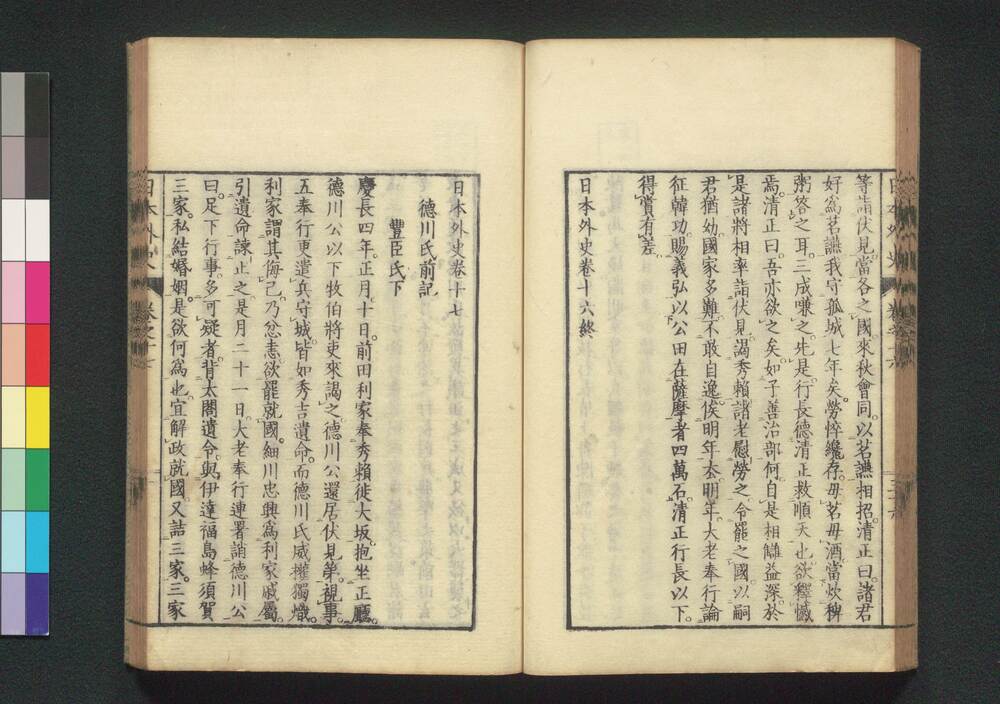 等詣伏見。當各之國。來秋會同。以茗讌相招。清正曰。諸君
好爲茗讌。我守孤城七年矣。勞悴纔存。毋茗毋酒。當炊稗
粥答之耳。三成嗛之。先是。行長德清正救順天也。欲釋憾
焉。清正曰。吾亦欲之矣。如子善治部何。自是相讎益深。於
是諸將相率詣伏見。謁秀賴。諸老慰勞之。令罷之國。以嗣
君猶幼。國家多難。不敢自逸。俟明年去。明年。大老奉行論
征韓功。賜義弘以公田在薩摩者四萬石。清正行長以下。
得賞有差。
日本外史卷十六終
日本外史卷十七
德川氏前記
豐臣氏下
慶長四年。正月十日。前田利家奉秀賴徙大坂。抱坐正廳。
德川公以下牧伯將吏來謁之。德川公還居伏見第。視事。
五奉行更遣兵守城。皆如秀吉遺命。而德川氏威權獨熾。
利家謂其侮己。乃忿恚欲罷就國。細川忠興爲利家戚屬。
引遺命諫止之。是月二十一日。大老奉行連署誚德川公
曰。足下行事。多可疑者。背太閤遺令。與伊達福島蜂須賀
三家。私結婚姻。是欲何爲也。宜解政就國。又詰三家。三家
日本外史 卷之十七